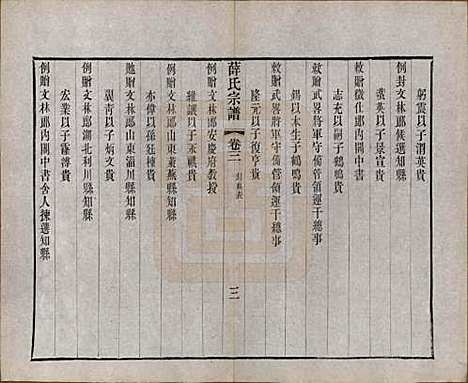 躬震以子渭英貴
例封文林郎候選知縣
黃英以子景宣貴
敕贈徵仕郎內閣中書
志充以嗣子鶴鳴貴
敕贈武畧將軍守備管領運千總事
錫以本生子鶴鳴貴
敕贈武畧將軍守備管領運千總事
隆元以子復亨貴
薛氏宗譜
卷三
封典表
三
例贈文林郎安慶府教授
維議以子永祺貴
例贈文林郎山東萊蕪縣知縣
亦偉以孫狂棟貴
馳贈文林郎山東淄川縣知縣
襄青以子炳文貴
例贈文林郎湖北利川縣知縣
宏業以子霖博貴
例贈文林郎內閣中書舍人揀選知縣